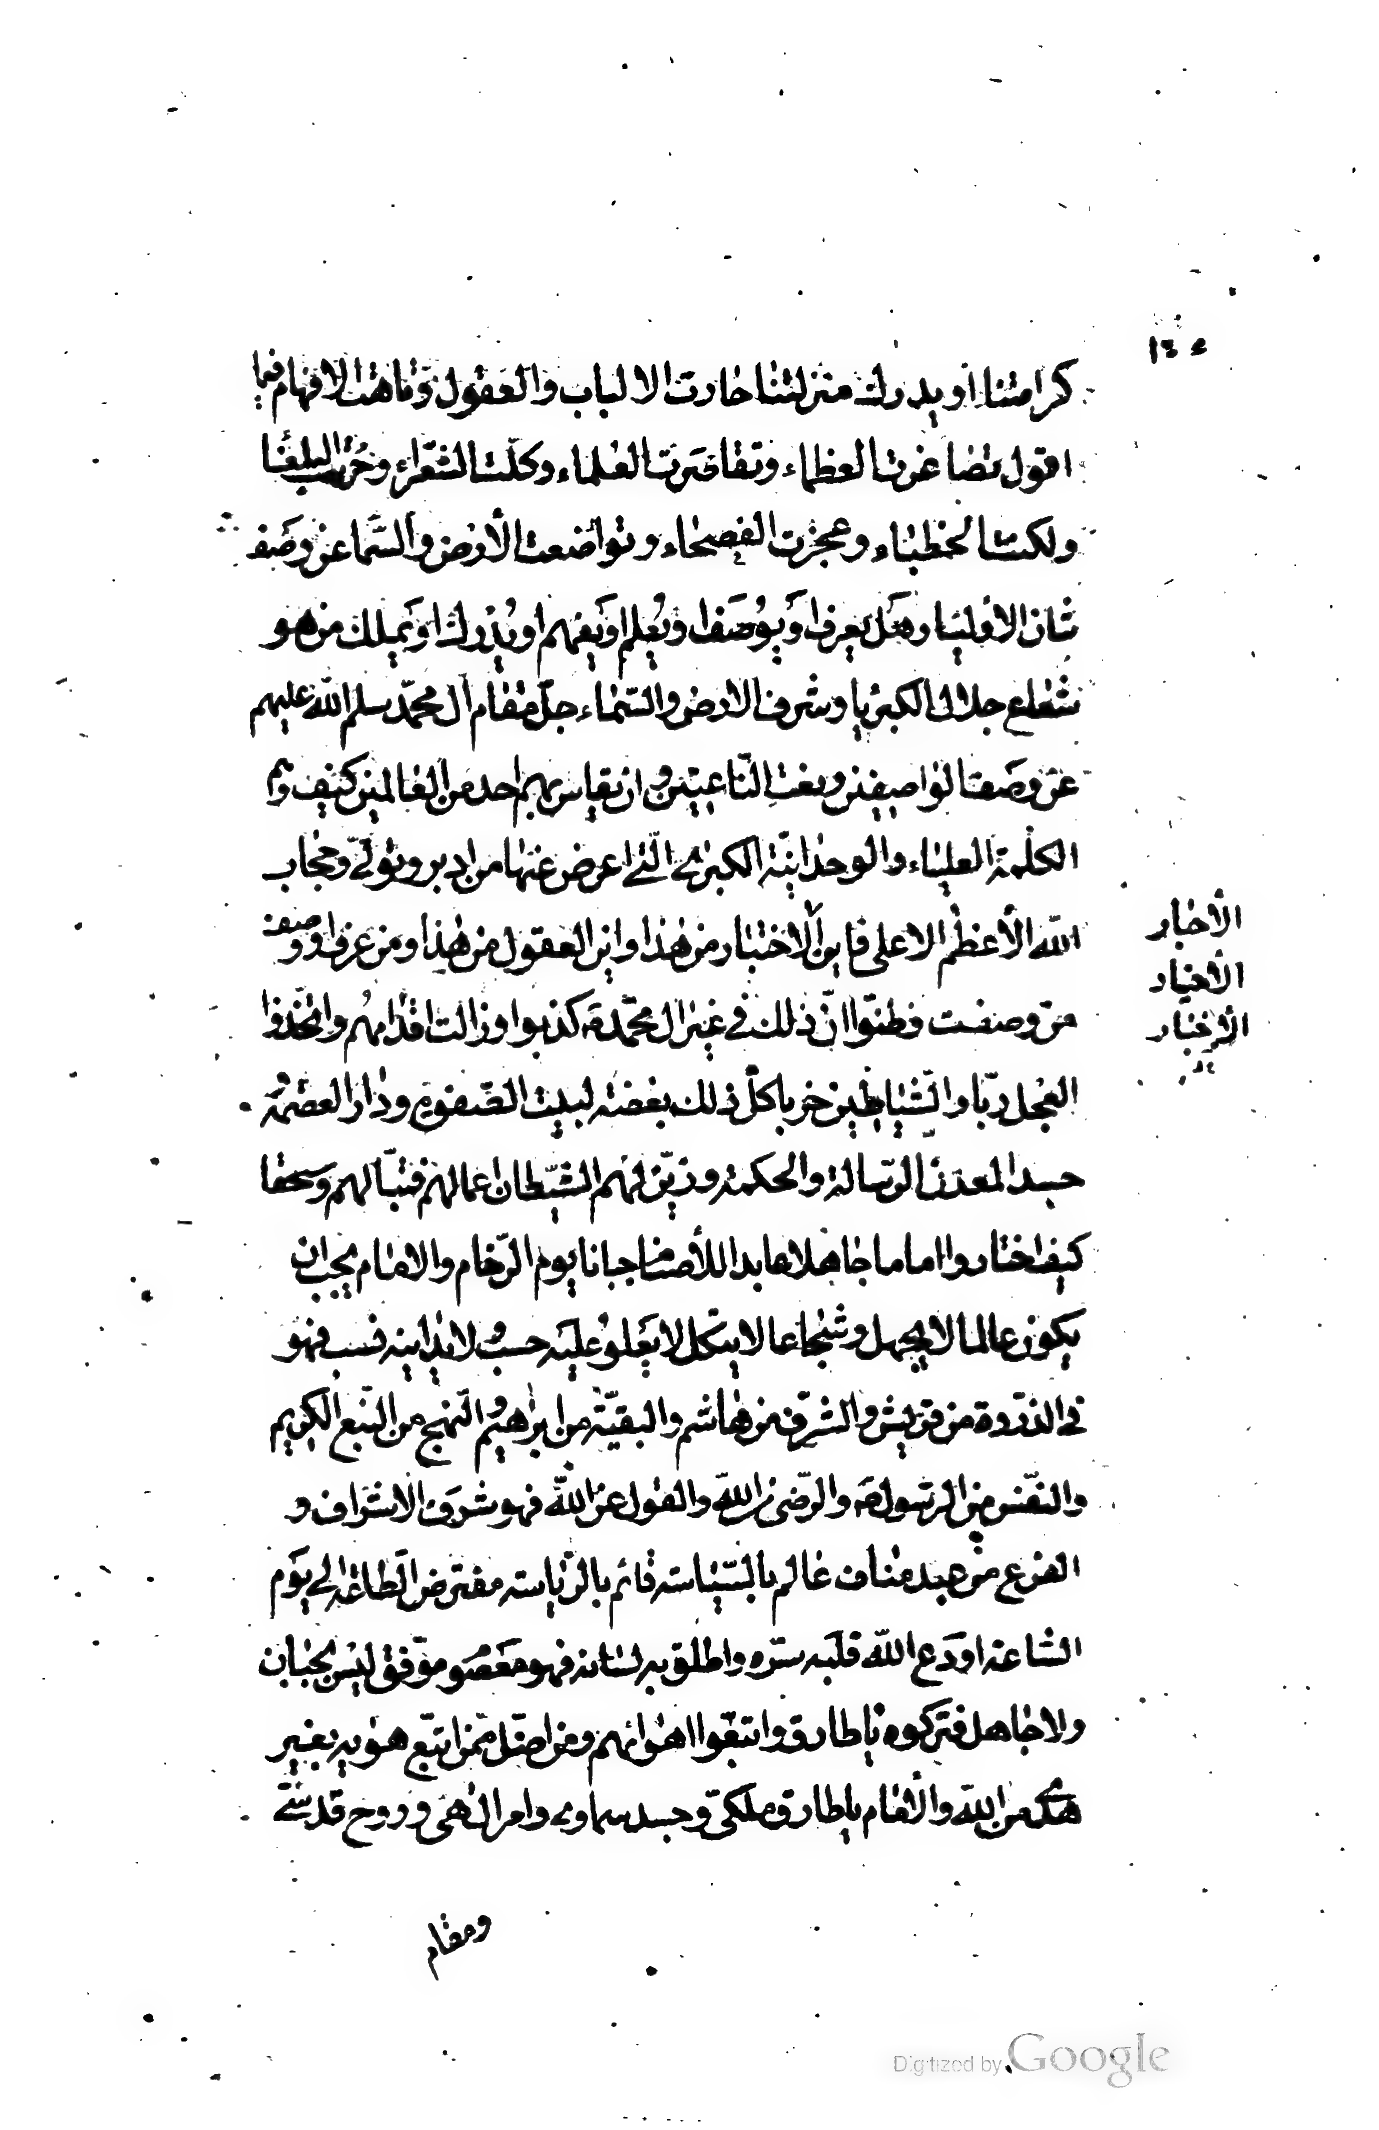 ١٤٠
كرامتنا او يدرك منزلتنا حارت الالباب والعقول وتاهت الافهام فيما
اقول تصاغرت العظماء وتقاصرت العلماء وكلّت الشعراء وخرست البلغا
ولكنت الخطباء وعجزت الفصحاء وتواضعت الأرض والسّما عن وصف
شان الاوليا وهل يعرف او يوصف او يعلم او يفهم او يدرك او يملك من هو
شعاع جلال الكبريا وشرف الارض والسّماء جلّ مقام آل محمّد سلم اللّه عليهم
عن وصف الواصفين ونعت النّاعتين وان يقاس بهم احد من العالمين كيف وهم
الكلمة العلياء والوحدانيّة الكبرى الّتى اعرض عنها من ادبر وتولّى وحجاب
اللّه الأعظم الاعلى فاين الاختيار من هذا واين العقول من هذا ومن عرف ووصف
من وصفت فظنّوا انّ ذلك في غير ال محمّد كذبوا وزالت اقدامهم واتّخذوا
العجل ربّا والشّياطين حزبا كلّ ذلك بغضة لبيت الصّفوة ودار العصمة
حسدا لمعدن الرّسالة والحكمة وزيّن لهم الشّيطان اعمالهم فتبّا لهم وسحقا
كيف اختاروا اماما جاهلا عابدا للأصنام جبانا يوم الزّحام والامام يجب ان
يكون عالما لا يجهل وشجاعا لا ينكل لا يعلو عليه حسب ولا يدانيه نسب فهو
في الذروة من قريش والشرف من هاشم والبقيّة من ابراهيم والنّهج من النّبع الكريم
والنفس من الرّسول والرّضى من اللّه والقول عن اللّه فهو شرف الاشراف و
الفرع من عبد مناف عالم بالسّياسة قائم بالرّياسة مفترض الطّاعة الى يوم
السّاعة اودع اللّه قلبه سرّه واطلق به لسانه فهو معصوم موفّق ليس بجبان
ولا جاهل فتركوه يا طارق واتبعوا اهوائهم ومن اضلّ ممّن اتبع هويه بغير
هدى من اللّه والامام يا طارق ملكيّ وجسد سماوى وامر الهى وروح قدسّى
ومقام
الأحبار
الأخيار
الاختيار
Digitized by Google